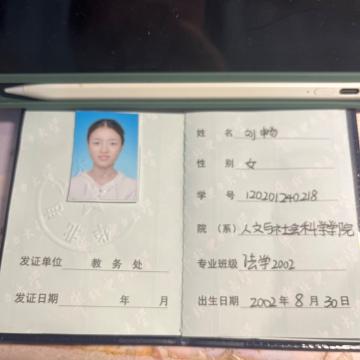 发证单位 教务处
发证日期 年 月
姓 名 刘畅
性 别 女
学 号 120201240218
院 (系) 人文与社会科学学院
专业班级 法学2002
出生日期 2002年8月30日